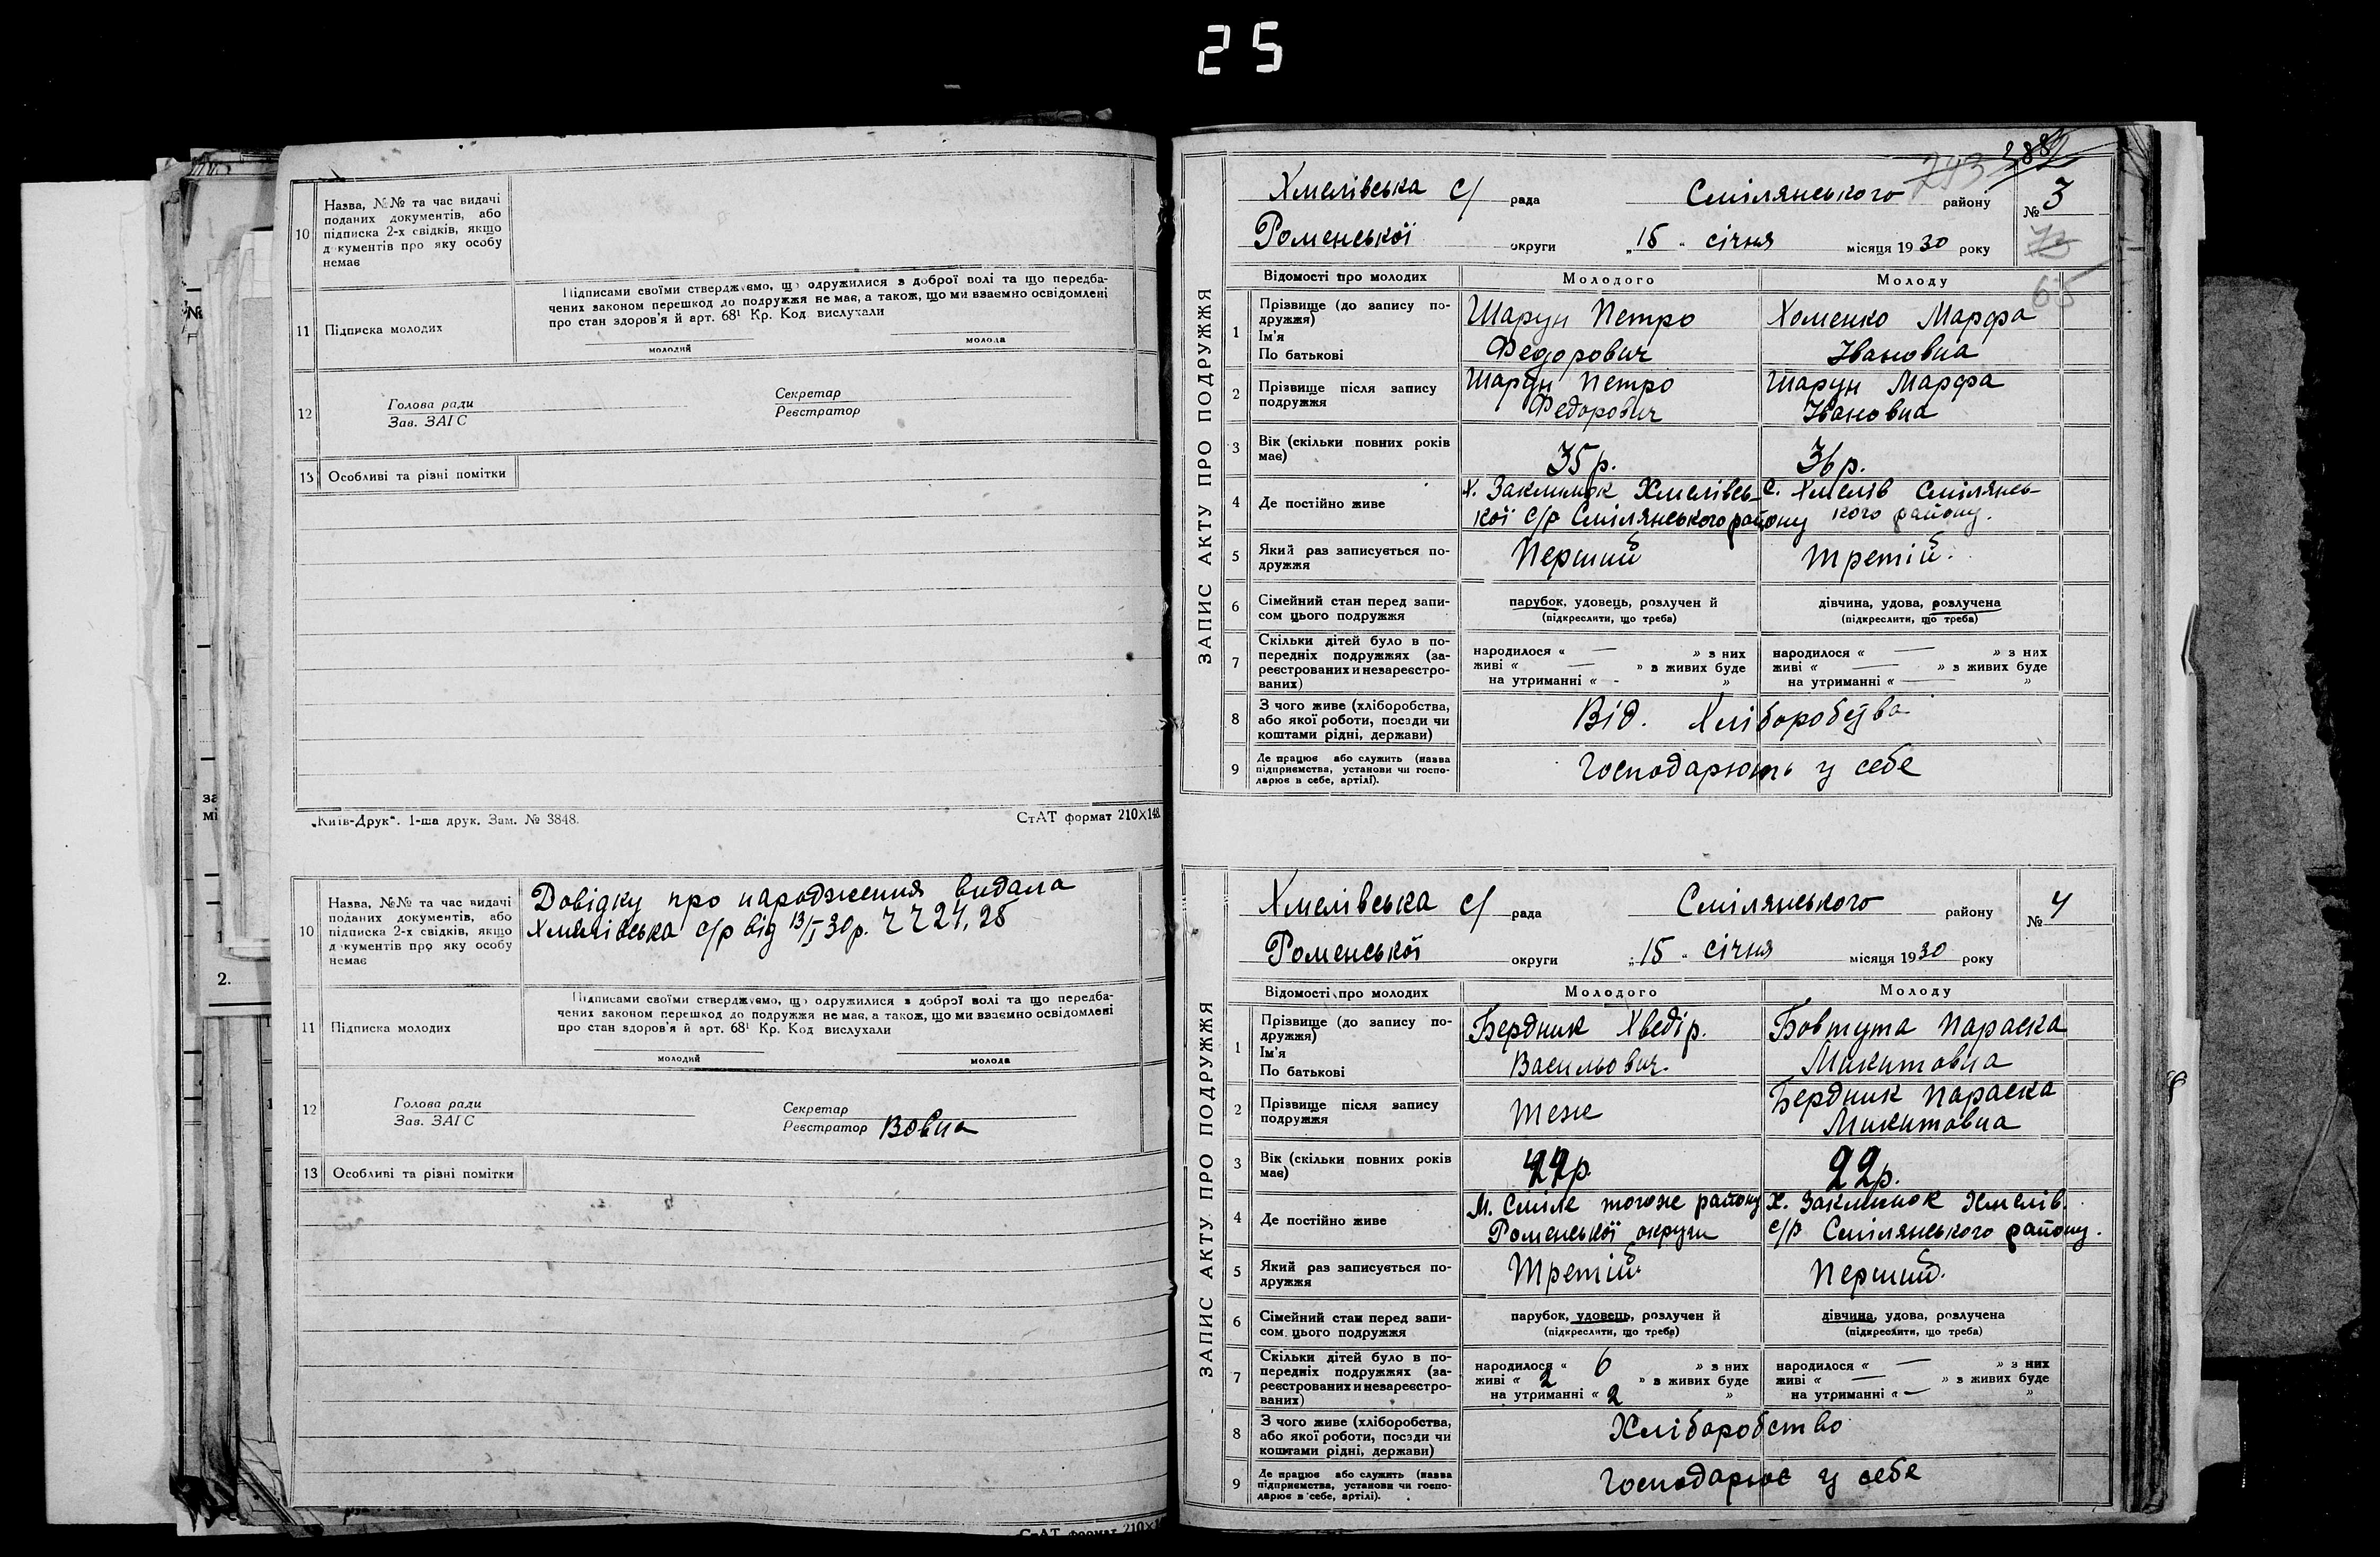 25
10
Назва, №№ та час видачі
поданих документів, або
підписка 2-х свідків, якщо
документів про яку особу
немає
11
Підписка молодих
Підписами своїми стверджуємо, що одружилися з доброї волі та що передба-
чених законом перешкод до подружжя не має, а також, що ми взаємно освідомлені
про стан здоров'я й арт. 68¹ Кр. Код вислухали
молодий
молода
12
Голова ради
Зав. ЗАГС
Секретар
Реєстратор
13
Особливі та різні помітки
„Київ-Друк". 1-ша друк. Зам. № 3848.
СтАТ формат 210×148.
10
Назва, №№ та час видачі
поданих документів, або
підписка 2-х свідків, якщо
документів про яку особу
немає
Довідку про народження видала
Хмелівська с/р від 13/I 30р. 24, 25
11
Підписка молодих
Підписами своїми стверджуємо, що одружилися з доброї волі та що передба-
чених законом перешкод до подружжя не має, а також, що ми взаємно освідомлені
про стан здоров'я й арт. 68¹ Кр. Код вислухали
молодий
молода
12
Голова ради
Зав. ЗАГС
Секретар
Реєстратор Вовна
13
Особливі та різні помітки
СтАТ формат 210×1
ЗАПИС АКТУ ПРО ПОДРУЖЖЯ
293
Хмелівська с/ рада Смілянського району
№ 3
Роменської округи „15" січня місяця 1930 року
73
65
Відомості про молодих
Молодого
Молоду
1
Прізвище (до запису по-
дружжя)
Ім'я
По батькові
Шарун Петро
Федорович
Хоменко Марфа
Івановна
2
Прізвище після запису
подружжя
Шарун Петро
Федорович
Шарун Марфа
Івановна
3
Вік (скільки повних років
має)
35 р.
36 р.
4
Де постійно живе
Х. Заклимок Хмелівсь-
кої с/р Смілянського району
с. Хмелів Смілянсь-
кого району.
5
Який раз записується по-
дружжя
Перший
Третій.
6
Сімейний стан перед запи-
сом цього подружжя
парубок, удовець, розлучен й
(підкреслити, що треба)
дівчина, удова, розлучена
(підкреслити, що треба)
7
Скільки дітей було в по-
передніх подружжях (за-
реєстрованих и незареєстро-
ваних)
народилося « — » з них
живі « — » з живих буде
на утриманні « - »
народилося « — » з них
живі « — » з живих буде
на утриманні « — »
8
З чого живе (хліборобства,
або якої роботи, посади чи
коштами рідні, держави)
Від. Хліборобства
9
Де працює або служить (назва
підприємства, установи чи госпо-
дарює в себе, артілі).
Господарюють у себе
ЗАПИС АКТУ ПРО ПОДРУЖЖЯ
Хмелівська с/ рада Смілянського району
№ 4
Роменської округи „15" січня місяця 1930 року
Відомості про молодих
Молодого
Молоду
1
Прізвище (до запису по-
дружжя)
Ім'я
По батькові
Бердник Хведір.
Васильович.
Бовтута Параска
Микитовна
2
Прізвище після запису
подружжя
Теже
Бердник Параска
Микитовна
3
Вік (скільки повних років
має)
22р.
4
Де постійно живе
М. Сміле тогоже району
Роменської округи
Х. Заклимок Хмелів.
с/р Смілянського району.
5
Який раз записується по-
дружжя
Третій.
Перший.
6
Сімейний стан перед запи-
сом цього подружжя
парубок, удовець, розлучен й
(підкреслити, що треба)
дівчина, удова, розлучена
(підкреслити, що треба)
7
Скільки дітей було в по-
передніх подружжях (за-
реєстрованих и незареєстро-
ваних)
народилося « 6 » з них
живі « 2 » з живих буде
на утриманні « 2 »
народилося « — » з них
живі « — » з живих буде
на утриманні « — »
8
З чого живе (хліборобства,
або якої роботи, посади чи
коштами рідні, держави)
Хліборобство
9
Де працює або служить (назва
підприємства, установи чи госпо-
дарює в себе, артілі).
Господарює у себе